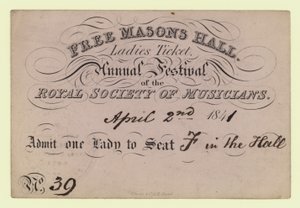 FREE MASONS HALL.
Ladies Ticket.
Annual Festival
of the
ROYAL SOCIETY OF MUSICIANS.
April 2nd 1841
Admit one Lady to Seat F in the Hall
No. 39